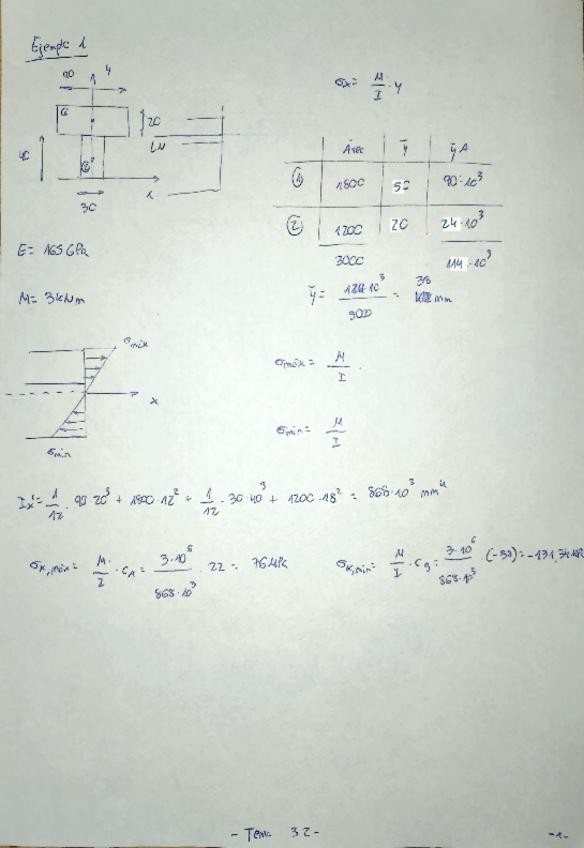 Ejemplo 1
90 y
σx = M/I · y
① 20
LN
40
②
30 x
Área ȳ ȳA
① 1800 50 90·10³
② 1200 20 24·10³
3000 114·10³
E = 165 GPa
M = 3 kNm
ȳ = 114·10³/3000 = 38 mm
σmáx
x
σmin
σmáx = M/I
σmin = M/I
Ix' = 1/12 · 90·20³ + 1800·12² + 1/12 · 30·40³ + 1200·18² = 868·10³ mm⁴
σx,máx = M/I · cA = 3·10⁶/868·10³ · 22 = 76 MPa
σx,min = M/I · cB = 3·10⁶/868·10³ · (-38) = -131,34 MPa
- Tema 32 -
-1-